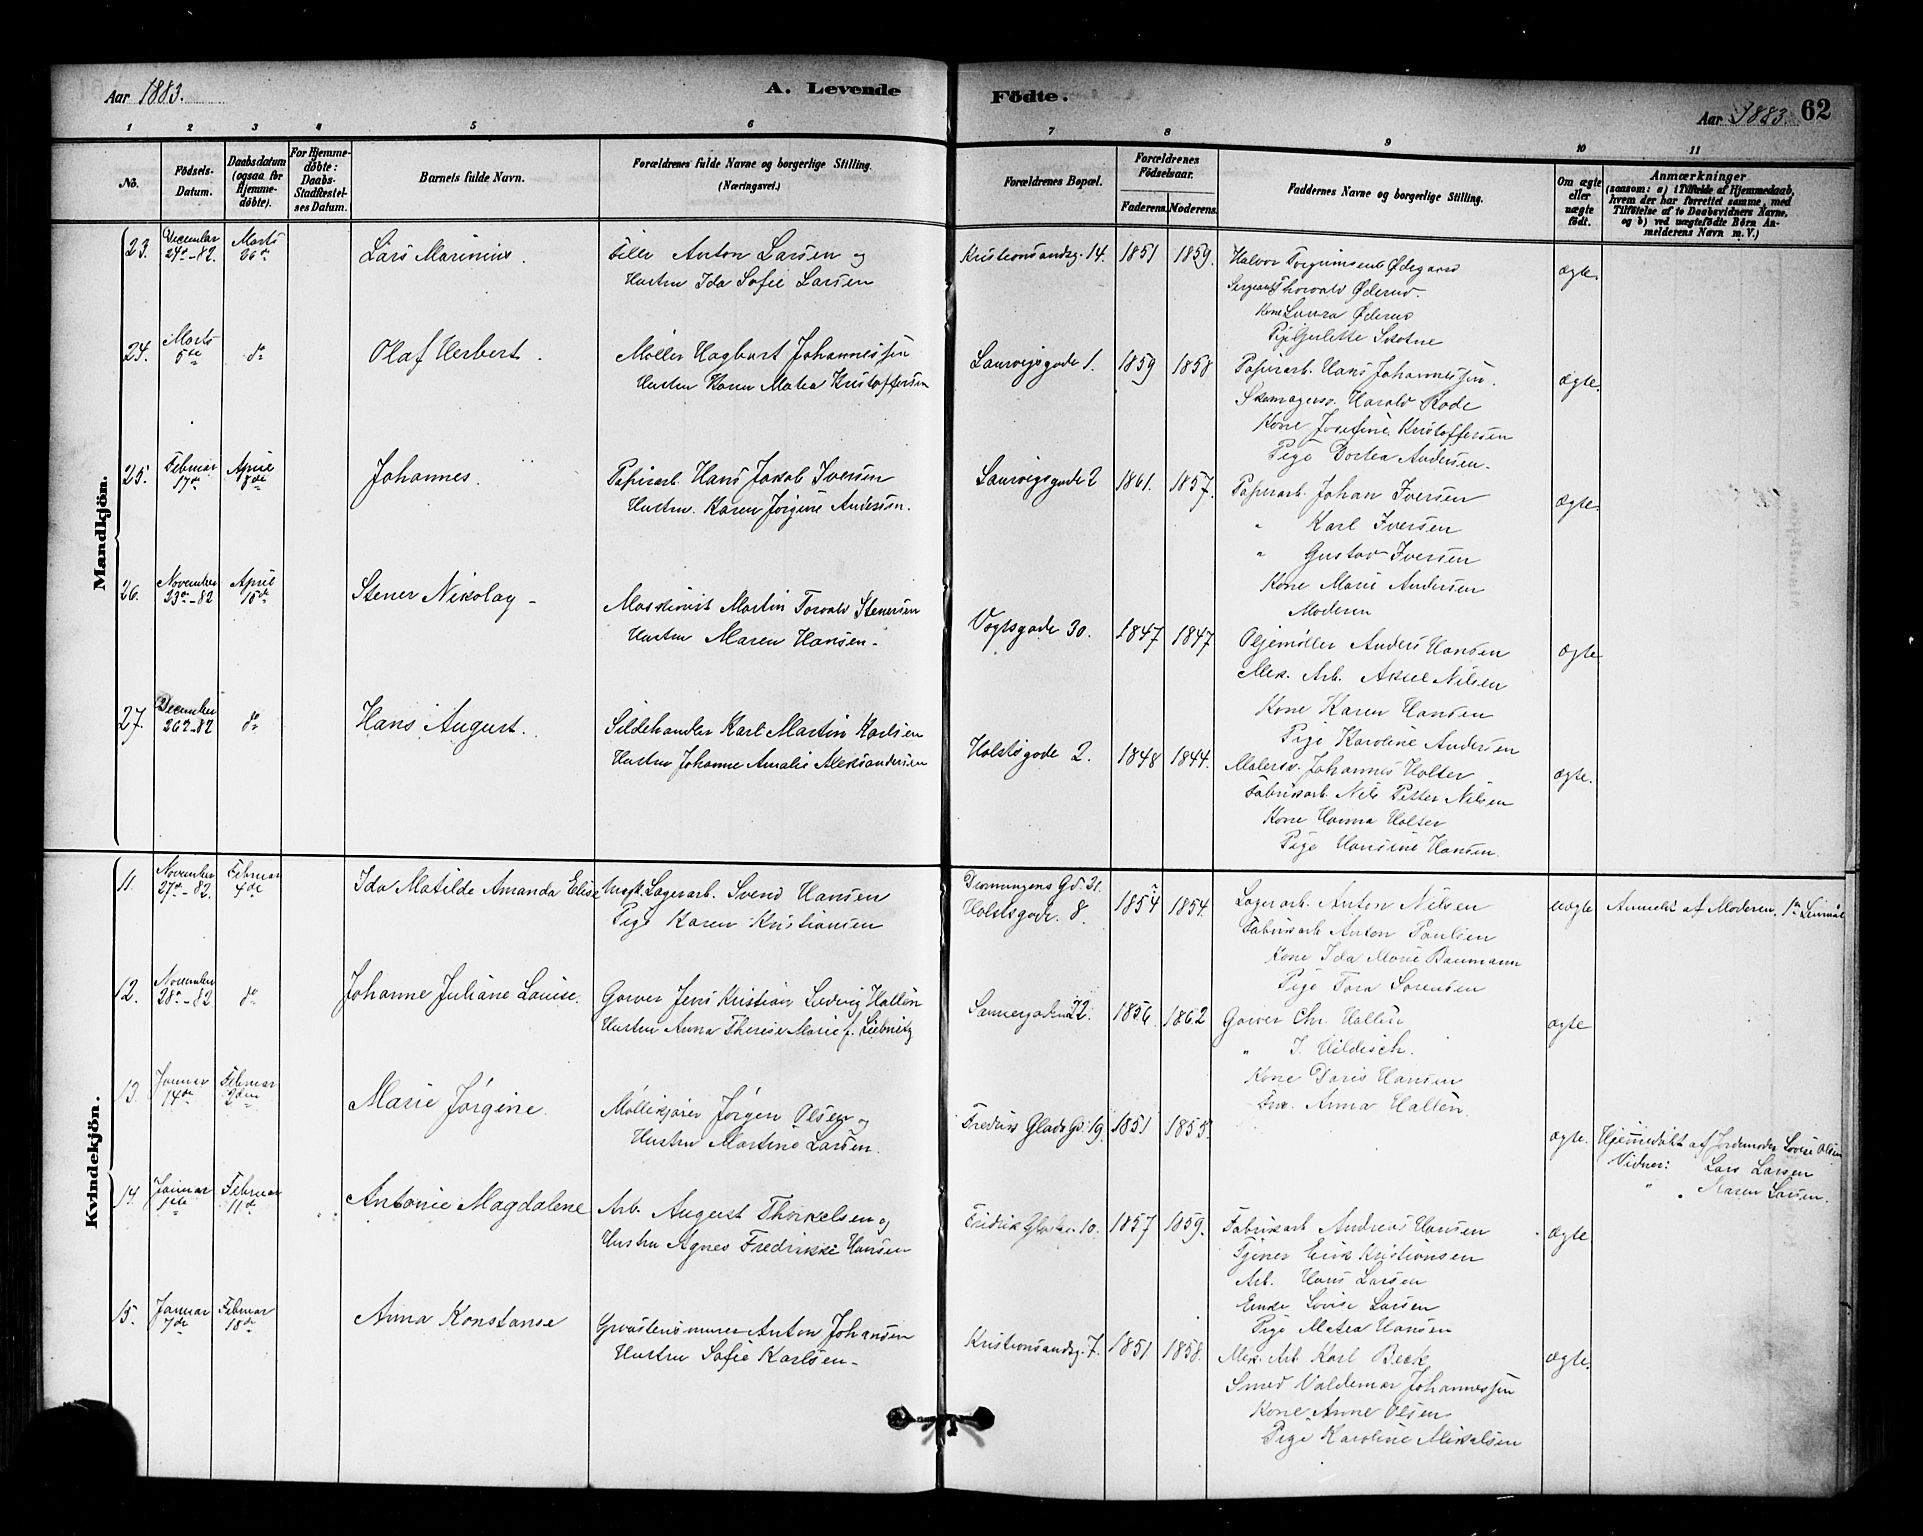 Aar 1883. A. Levende Födte. Aar 1883. 62
1 2 3 4 5 6 7 8 9 10 11
No.
Födsels-Datum.
Daabsdatum (ogsaa for Hjemme-døbte).
For Hjemme-døbte: Daabs-Stadfæstel-ses Datum.
Barnets fulde Navn.
Forældrenes fulde Navne og borgerlige Stilling. (Næringsvei.)
Forældrenes Bopæl.
Forældrenes Födselsaar.
Faderens. Moderens.
Faddernes Navne og borgerlige Stilling.
Om ægte eller uægte födt.
Anmærkninger
(saasom: a) i Tilfælde af Hjemmedaab, hvem der har forrettet samme, med Tilföielse af to Daabsvidners Navne, og b) ved uægtefödte Börn Anmelderens Navn m. V.)
Mandkjön.
23. December 24de-82. Marts 26de Lars Marinius. Anton Larsen og Kristiansandsg. 14. 1851 1859. Halvor Ødegaard ægte.
Hustru Ida Sofie Larsen
Sergeant Thorvald Øderud.
Kone Laura Øderud
24. Marts 5te do Olaf Herbert. Møller Hagbart Johannessen Laurvigsgade 1. 1859 1858 Papirarb. Hans Johannessen. ægte.
Hustru Karen Matea Kristoffersen
Skomagersv. Harald Rode
Kone Josefine Kristoffersen
Pige Dortea Andersen.
25. Februar 17de April 8de Johannes. Papirarb. Hans Jakob Iversen Laurvigsgade 2 1861. 1857. Papirarb. Johan Iversen ægte.
Hustru. Karen Jørgine Andersen.
" Karl Iversen
" Gustav Iversen
Kone Marie Andersen
Moderen
26. November 23de-82 April 15de Stener Nikolay - Maskinist Martin Torvald Stenersen Vogtsgade 30. 1847 1847 Oljemøller Anders Hansen ægte
Hustru Maren Hansen.
Mek. Arb. Aksel Nilsen
Kone Karen Hansen
Pige Karoline Andersen
27. December 26de-82 do Hans August. Sildehandler Karl Martin Karlsen Holstsgade 2. 1848 1844. Malersv. Johannes Holter ægte.
Hustru Johanne Amalie Aleksandersen
Fabrikarb. Nils Petter Nilsen
Kone Hanna Holter
Pige Hansine Hansen.
Kvindekjön.
11. November 27de-82. Februar 4de Ida Matilde Amanda Elise Ungk. Lagerarb. Svend Hansen Dronningens Gd. 21. 1854 1854. Lagerarb Anton Nilsen uægte Anmeldt af Moderen. 1ste Leiermål
Pige Karen Kristiansen Holstsgade 8.
Fabrikarb Anton Paulsen
Kone Ida Marie Baumann
Pige Tora Sørensen
12. November 28de-82 do Johanne Juliane Louise. Garver Jens Kristian Ludvig Hallén Sannergaden 22. 1856. 1862 Garver Chr. Hallén ægte
Hustru Anna Therese Marie f. Liebnitz
" J. Hildisch.
Kone Doris Hansen
Frk. Anna Hallén.
13. Januar 14de Februar Marie Jørgine. Jørgen Olsen og Fredrik Glads Gd. 19. 1851 1855. ægte. Hjemmedøbt af Jordemoder Lovise Olsen
Hustru Martine Larsen.
Vidner: Lars Larsen
" " Maren Larsen.
14. Januar 1ste Februar 11de Antonie Magdalene Arb. August Thorkelsen og Fredrik Gladsg. 10. 1857 1859. Fabrikarb Andreas Hansen ægte
Hustru Agnes Fredrikke Hansen
Tjener Erik Kristiansen
Arb. Hans Larsen
Enke Lovise Larsen
Pige Matea Hansen
15. Januar 7de Februar 18de Anna Konstanse Graastensmurer Anton Johansen Kristiansandsg. 7. 1851. 1858. Mek. Arb Karl Beck ægte.
Hustru Sofie Karlsen -
Smed Valdemar Johannessen
Kone Anne Olsen
Pige Karoline Mikalsen